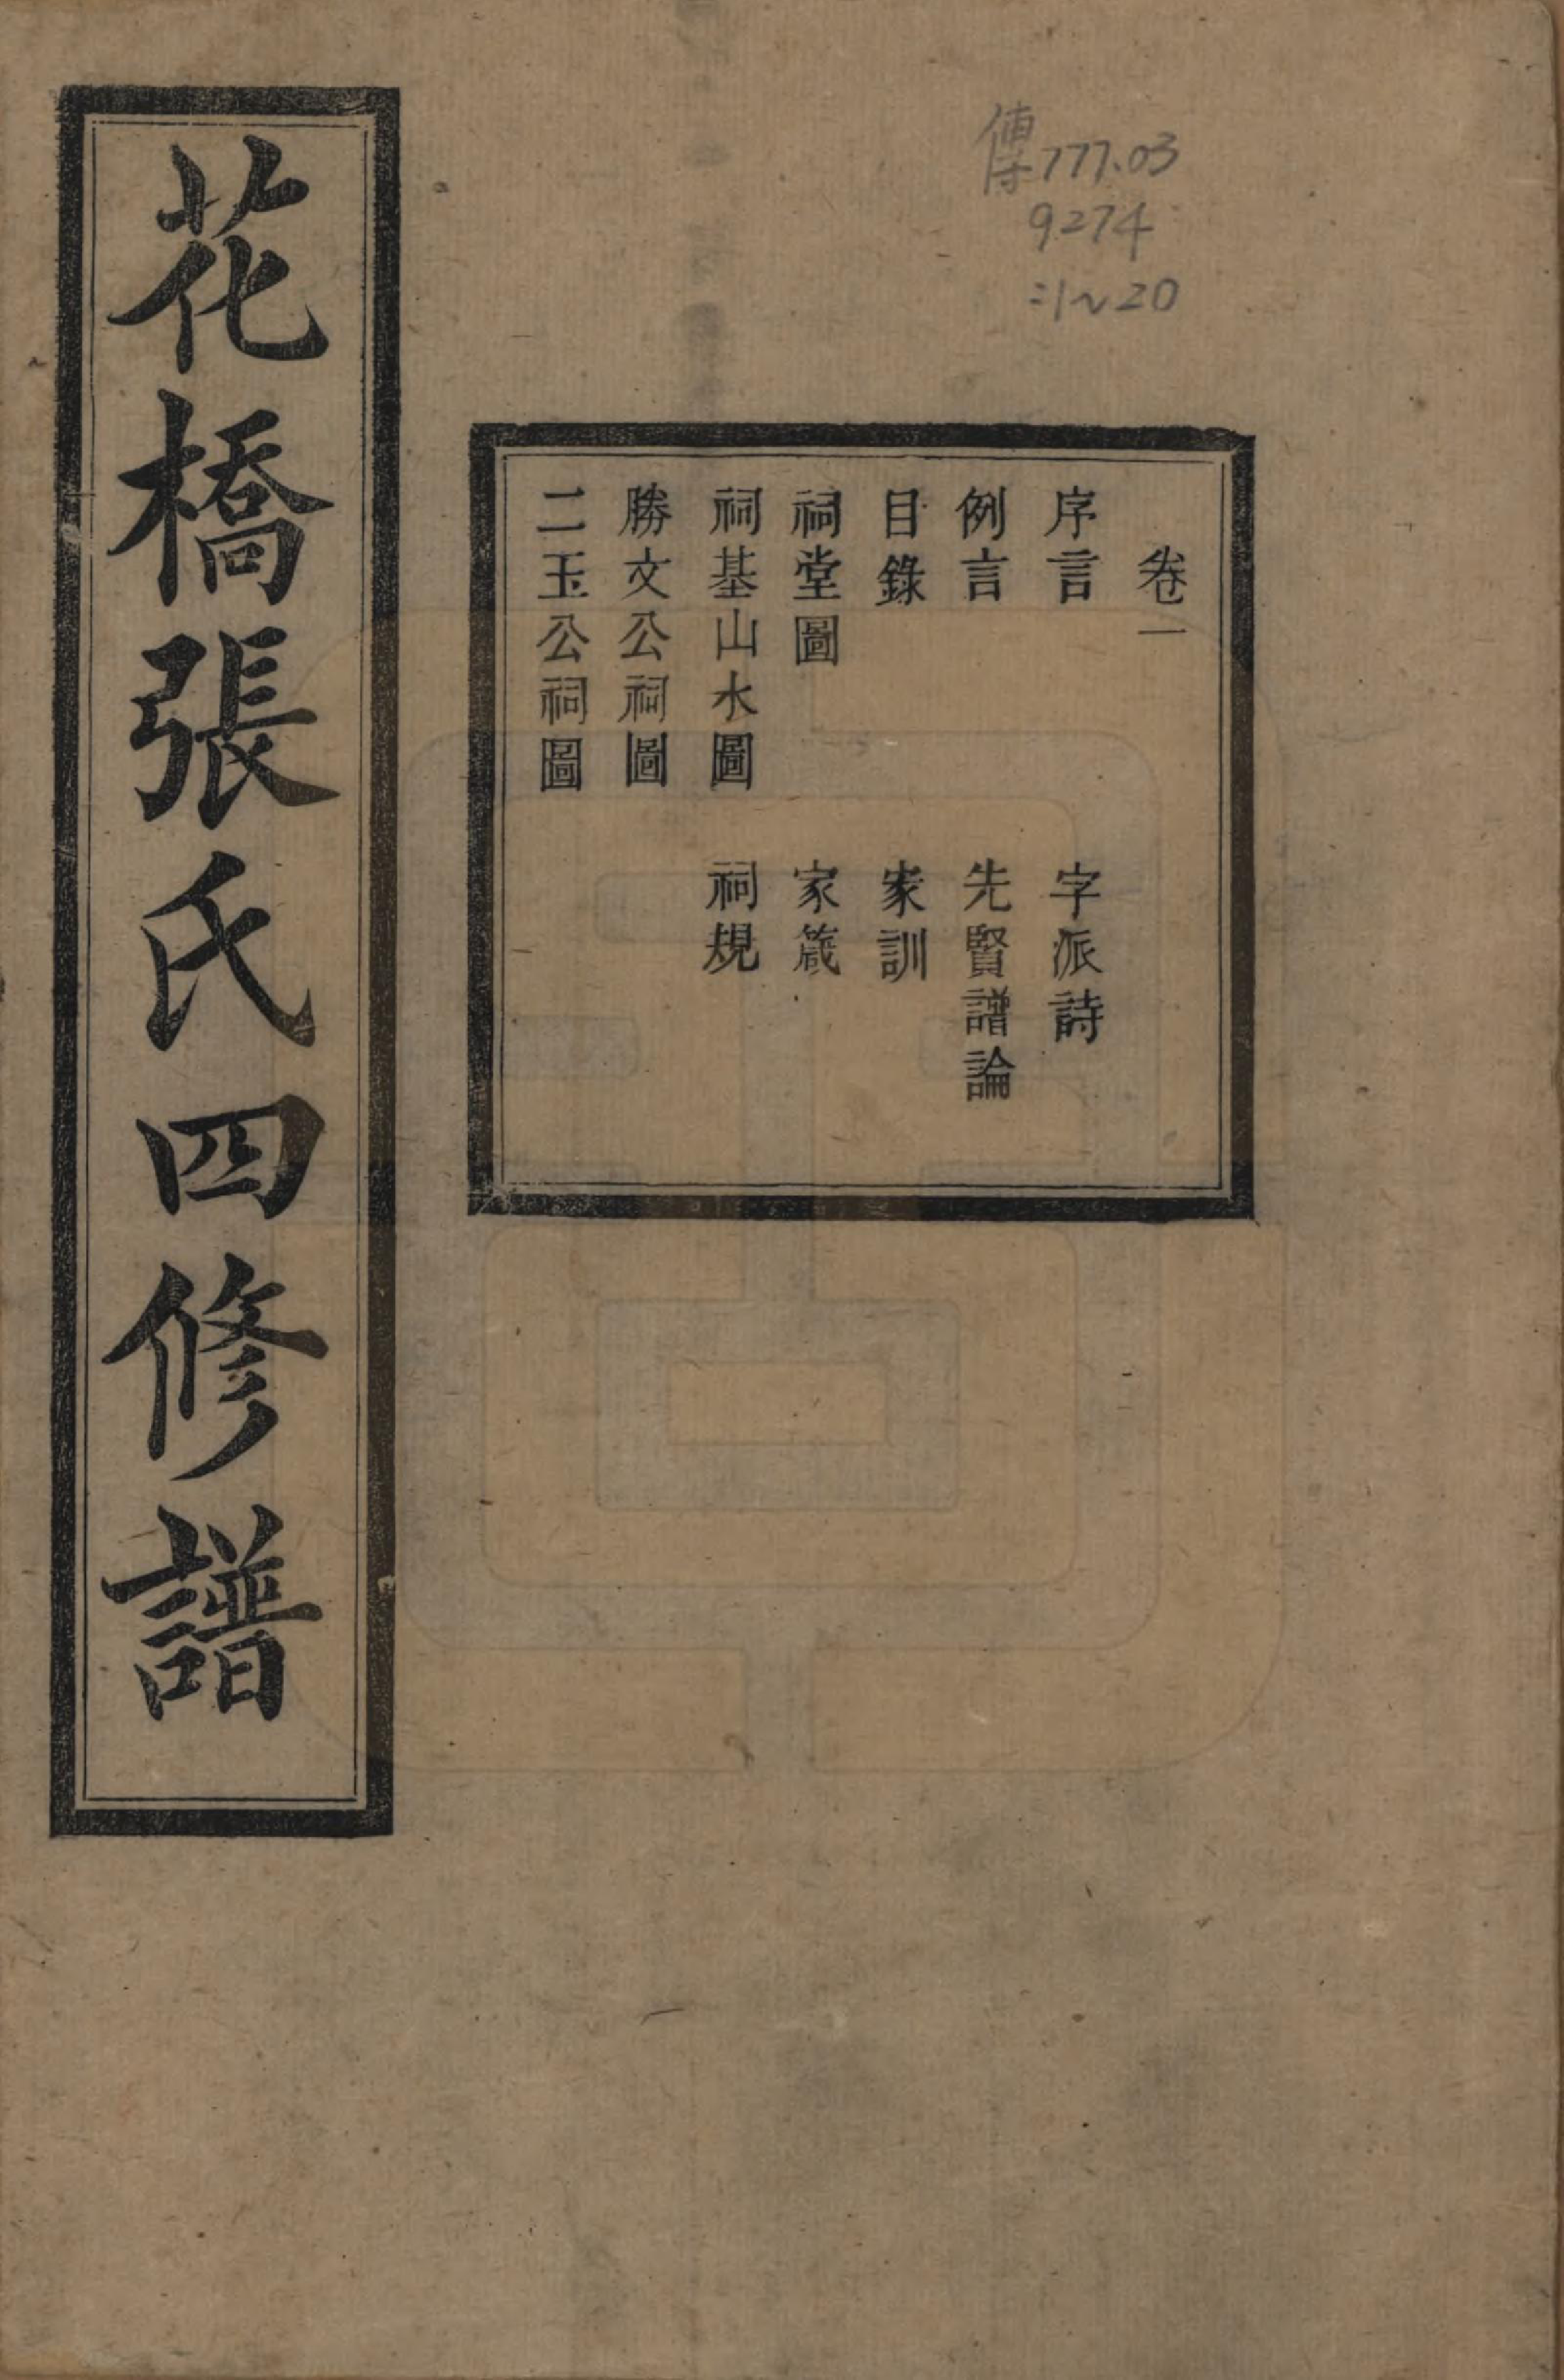 傳777.03
9274
:1~20
卷一
序言 字派詩
例言 先賢譜論
目錄 家訓
祠堂圖 家箴
祠基山水圖 祠規
勝文公祠圖
二玉公祠圖
花橋張氏四修譜